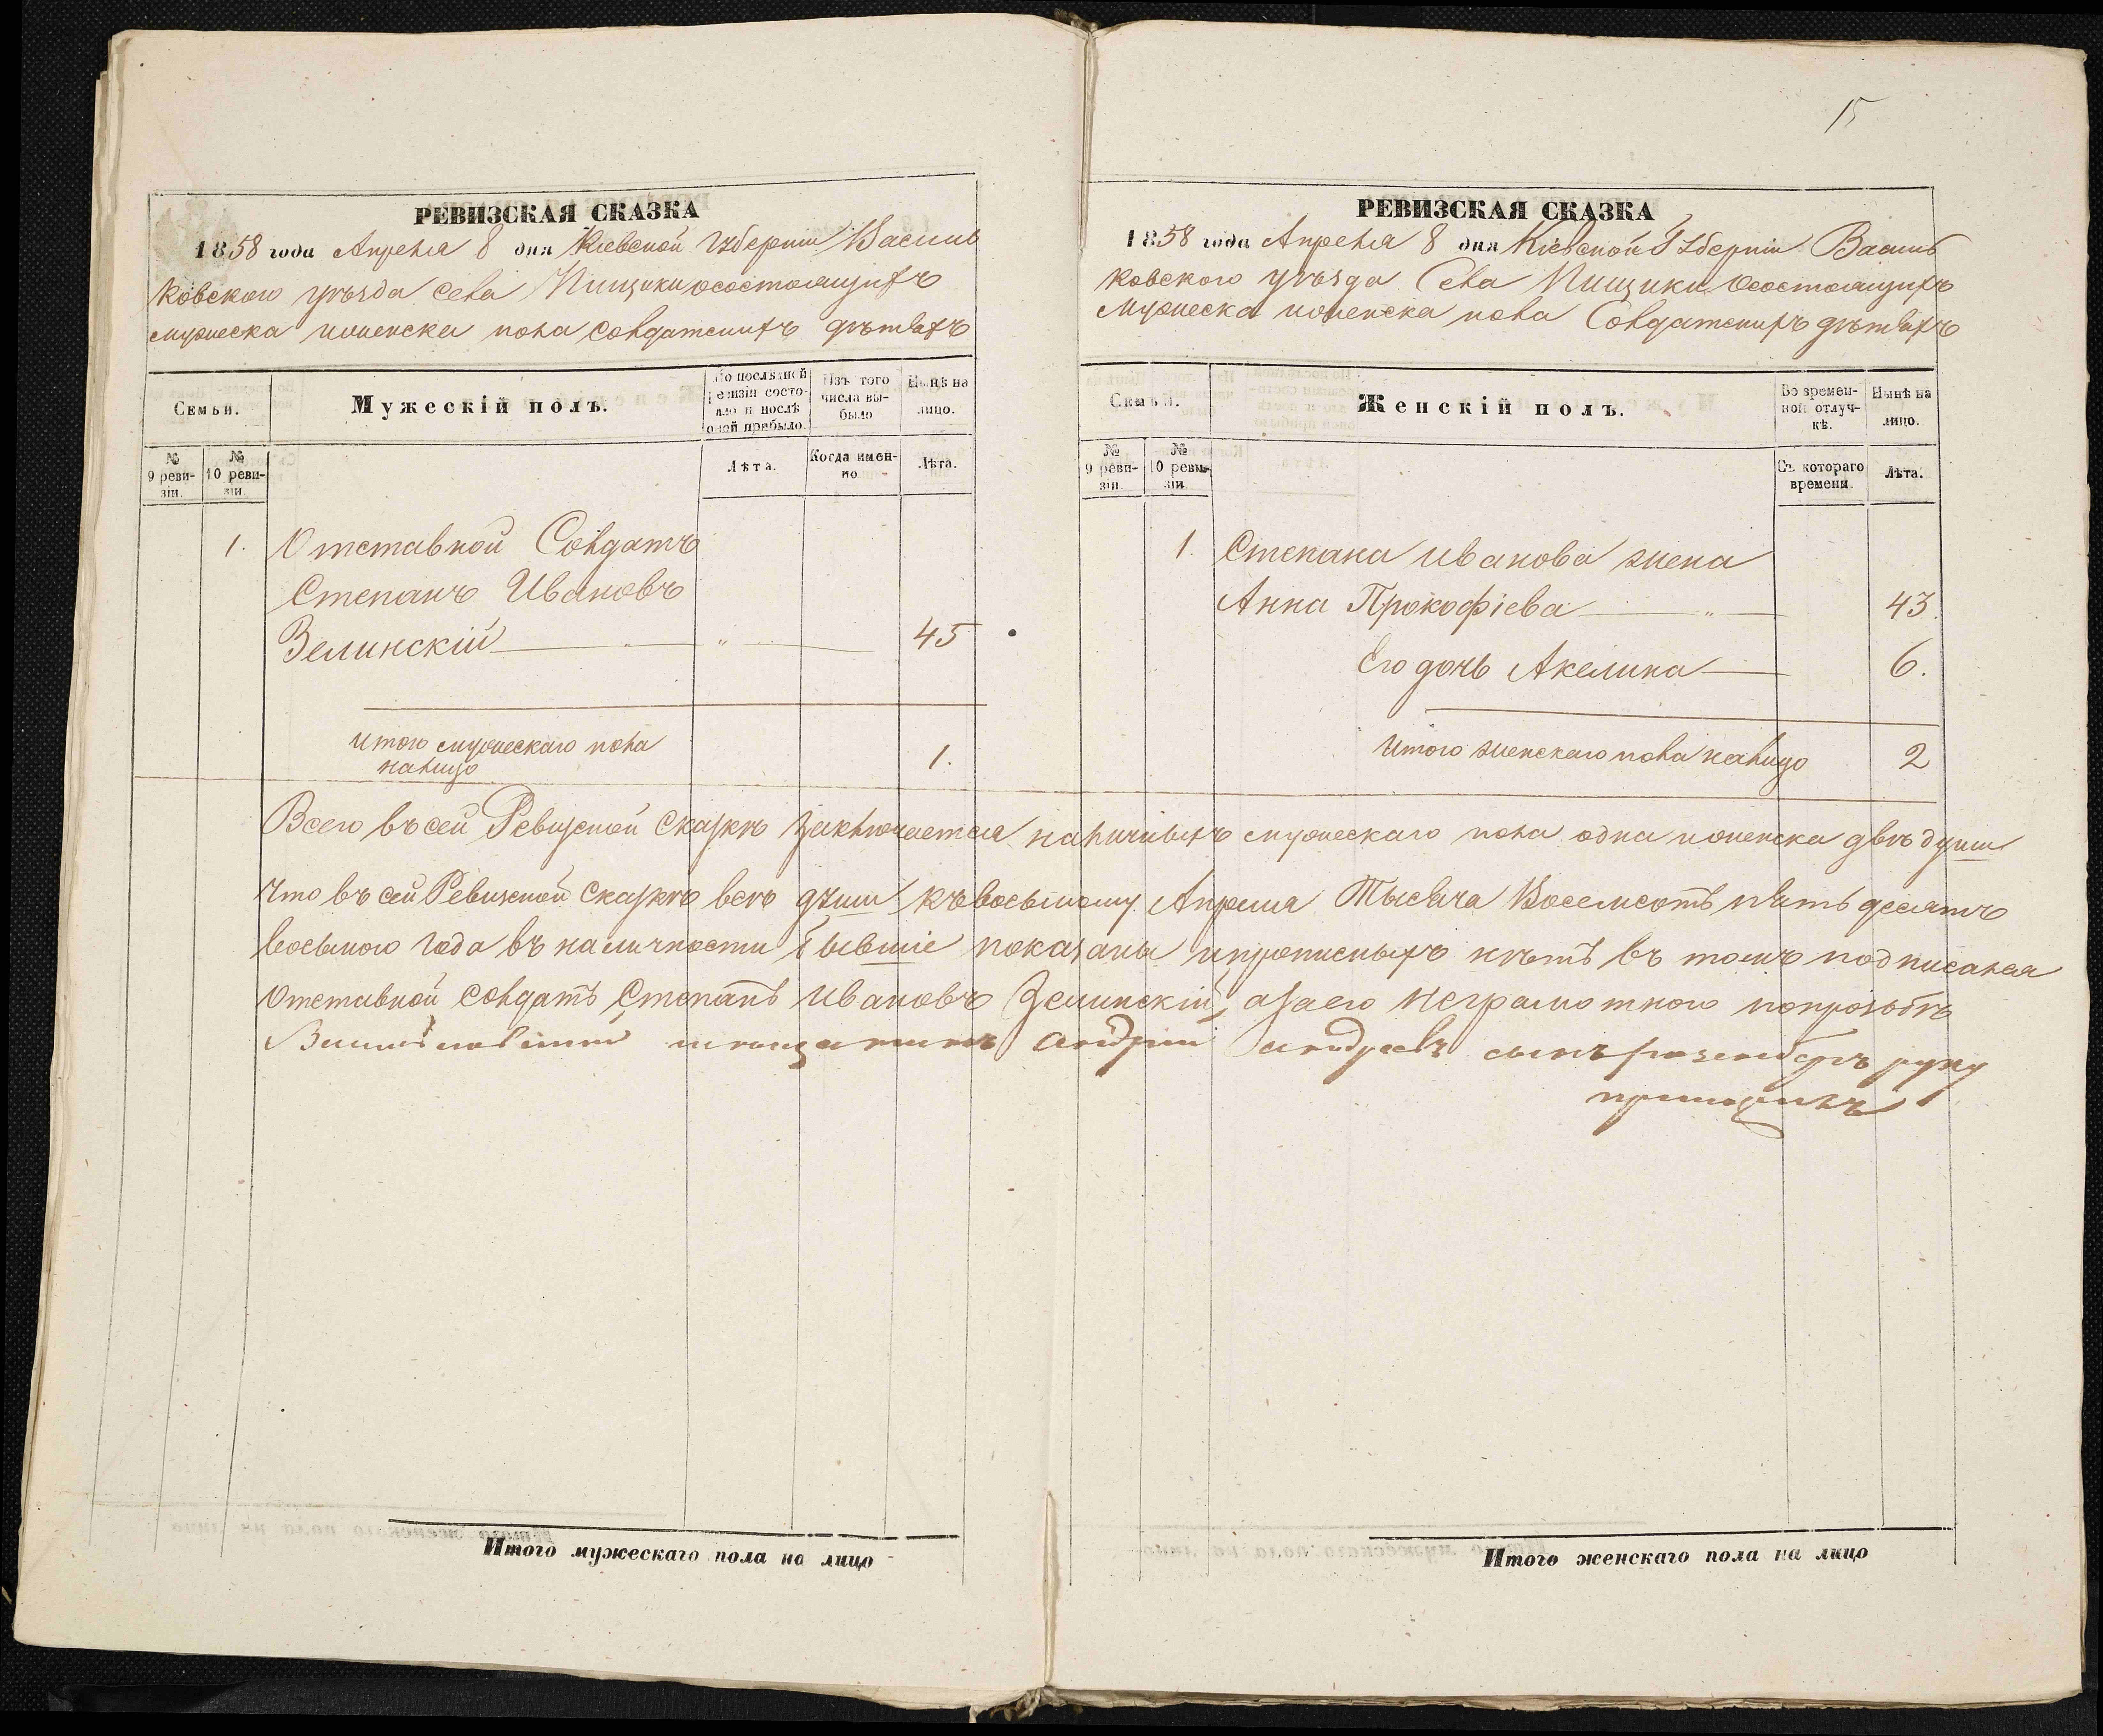 15
РЕВИЗСКАЯ СКАЗКА
1858 года Апреля 8 дня Кіевской Губерніи Василь
ковского уѣзда Села Пищики осостоящихъ
мужеска и женска пола Солдатскихъ дѣтяхъ
Семьи.
Мужескій полъ.
По послѣдней ревизіи состояло и послѣ оной прибыло.
Изъ того числа выбыло
Нынѣ на лицо.
№ 9 ревизіи.
№ 10 ревизіи.
Лѣта.
Когда именно
Лѣта.
1. Отставной Солдатъ
Степанъ Ивановъ
Зелинскій — „ — 45
Итого мужескаго пола
налицо 1.
РЕВИЗСКАЯ СКАЗКА
1858 года Апреля 8 дня Кіевской Губерніи Василь
ковского уѣзда Села Пищики осостоящихъ
Мужеска и женска пола Солдатскихъ дѣтяхъ
Семьи.
Женскій полъ.
Во временной отлучкѣ.
Нынѣ на лицо.
№ 9 ревизіи.
№ 10 ревизіи.
Съ котораго времени.
Лѣта.
1. Степана Иванова жена
Анна Прокофіева — „ — 43.
Его дочь Акелина — 6.
Итого женскаго пола налицо 2
Всего въ сей Ревизской Сказкѣ Заключается наличныхъ мужескаго пола одна и женска двѣ души
Что въ сей Ревизской Сказкѣ всѣ души къ восьмому Апреля Тысяча Восемсотъ пять десятъ
восьмого года въ наличности бывшіе показаны и прописныхъ нѣтъ въ томъ подписался
Отставной Солдатъ Степанъ Ивановъ Зелинскій, а за его неграмотного попрозьбѣ
Андрій Андреевъ сынъ руку
приложилъ
Итого мужескаго пола на лицо
Итого женскаго пола на лицо